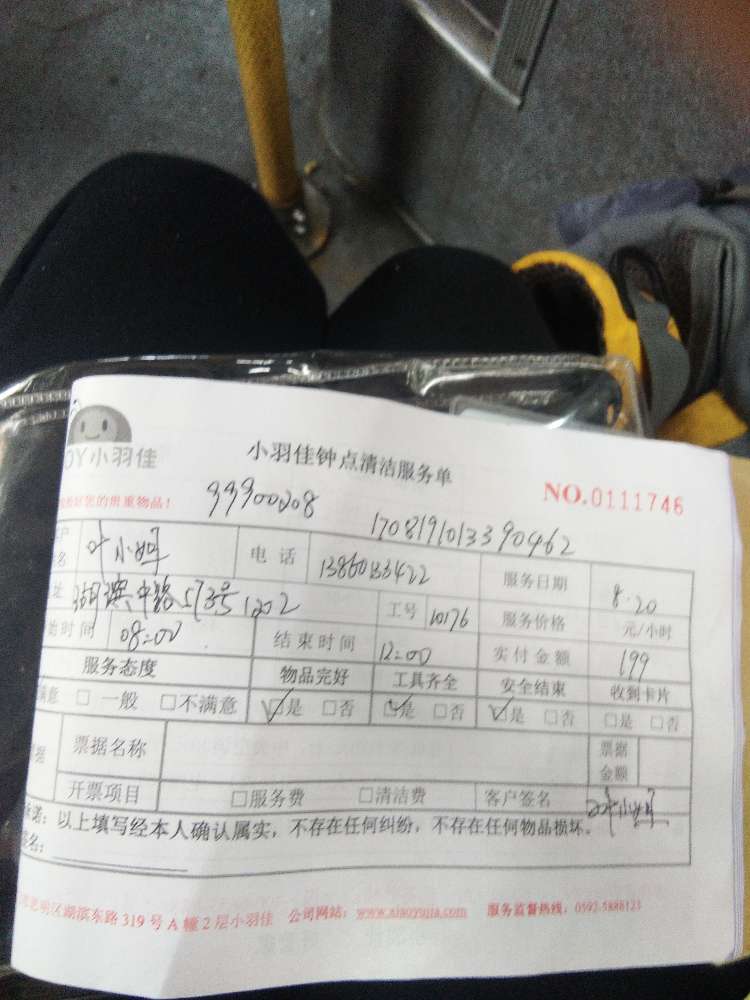 OY小羽佳
小羽佳钟点清洁服务单
NO.0111746
好您的贵重物品!
99900208
170819101339 0462
名 叶小姐 电话 13860133422 服务日期 8.20
址 湖滨中路573号1202 工号 10176 服务价格 元/小时
始时间 08:00 结束时间 12:00 实付金额 199
服务态度 物品完好 工具齐全 安全结束 收到卡片
满意 □ 一般 □不满意 ☑是 □否 ☑是 □否 ☑是 □否 □是 □否
票据名称 票据金额
开票项目 □服务费 □清洁费 客户签名 叶小姐
承诺：以上填写经本人确认属实，不存在任何纠纷，不存在任何物品损坏。
签名：
明区湖滨东路319号A幢2层小羽佳 公司网站：www.xiaoyujia.com 服务监督热线：0592-5886123